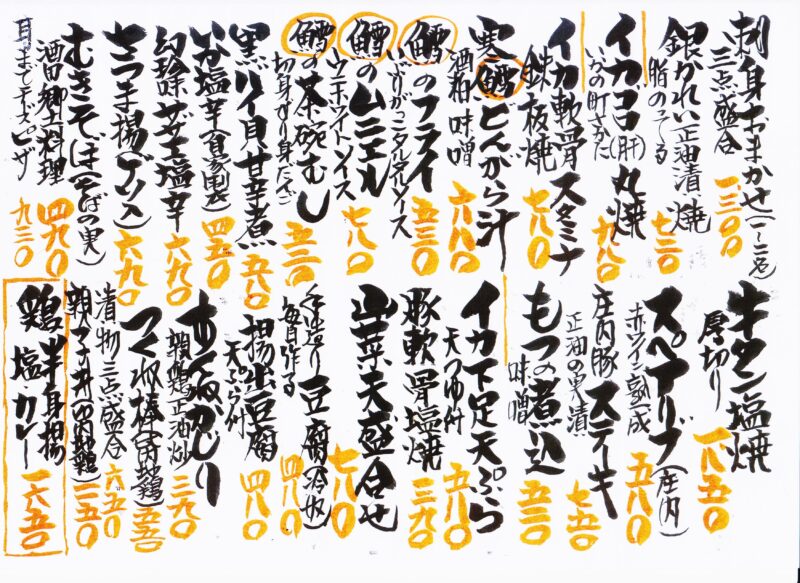 刺身おまかせ(一~二名)
三点盛合
一三〇〇
銀かれい正油漬焼
脂のってる
七三〇
イカゴロ(肝)丸焼
いかの町さかた
九八〇
イカ軟骨スタミナ
鉄板焼
七八〇
寒鱈どんがら汁
酒粕味噌
六八〇
鱈のフライ
いぶりがっこタルタルソース
五三〇
鱈のムニエル
ホワイトソース
七八〇
鱈の茶碗むし
切身すり身だんご
黒バイ貝甘辛煮
五八〇
いか塩辛(自家製)
四五〇
塩辛
六九〇
さつま揚
六九〇
むきそば(そばの実)
酒田郷土料理
四九〇
ピザ
九三〇
牛タン塩焼
厚切り
一八五〇
スペアリブ(庄内)
赤ワイン熟成
五八〇
庄内豚ステーキ
正油の実漬
七五〇
もつの煮込
味噌
五三〇
イカ下足天ぷら
天つゆ付
五八〇
豚軟骨塩焼
三九〇
山菜天盛合せ
七八〇
手造り豆腐(冷奴)
毎日作る
四八〇
揚出豆腐
天ぷら付
四八〇
せせりがじり
親鶏正油炒
三九〇
つくね棒(内地鶏)
五五〇
漬物三点盛合
六五〇
親子丼(内地鶏)
一一五〇
鶏半身揚
塩・カレー
一六五〇